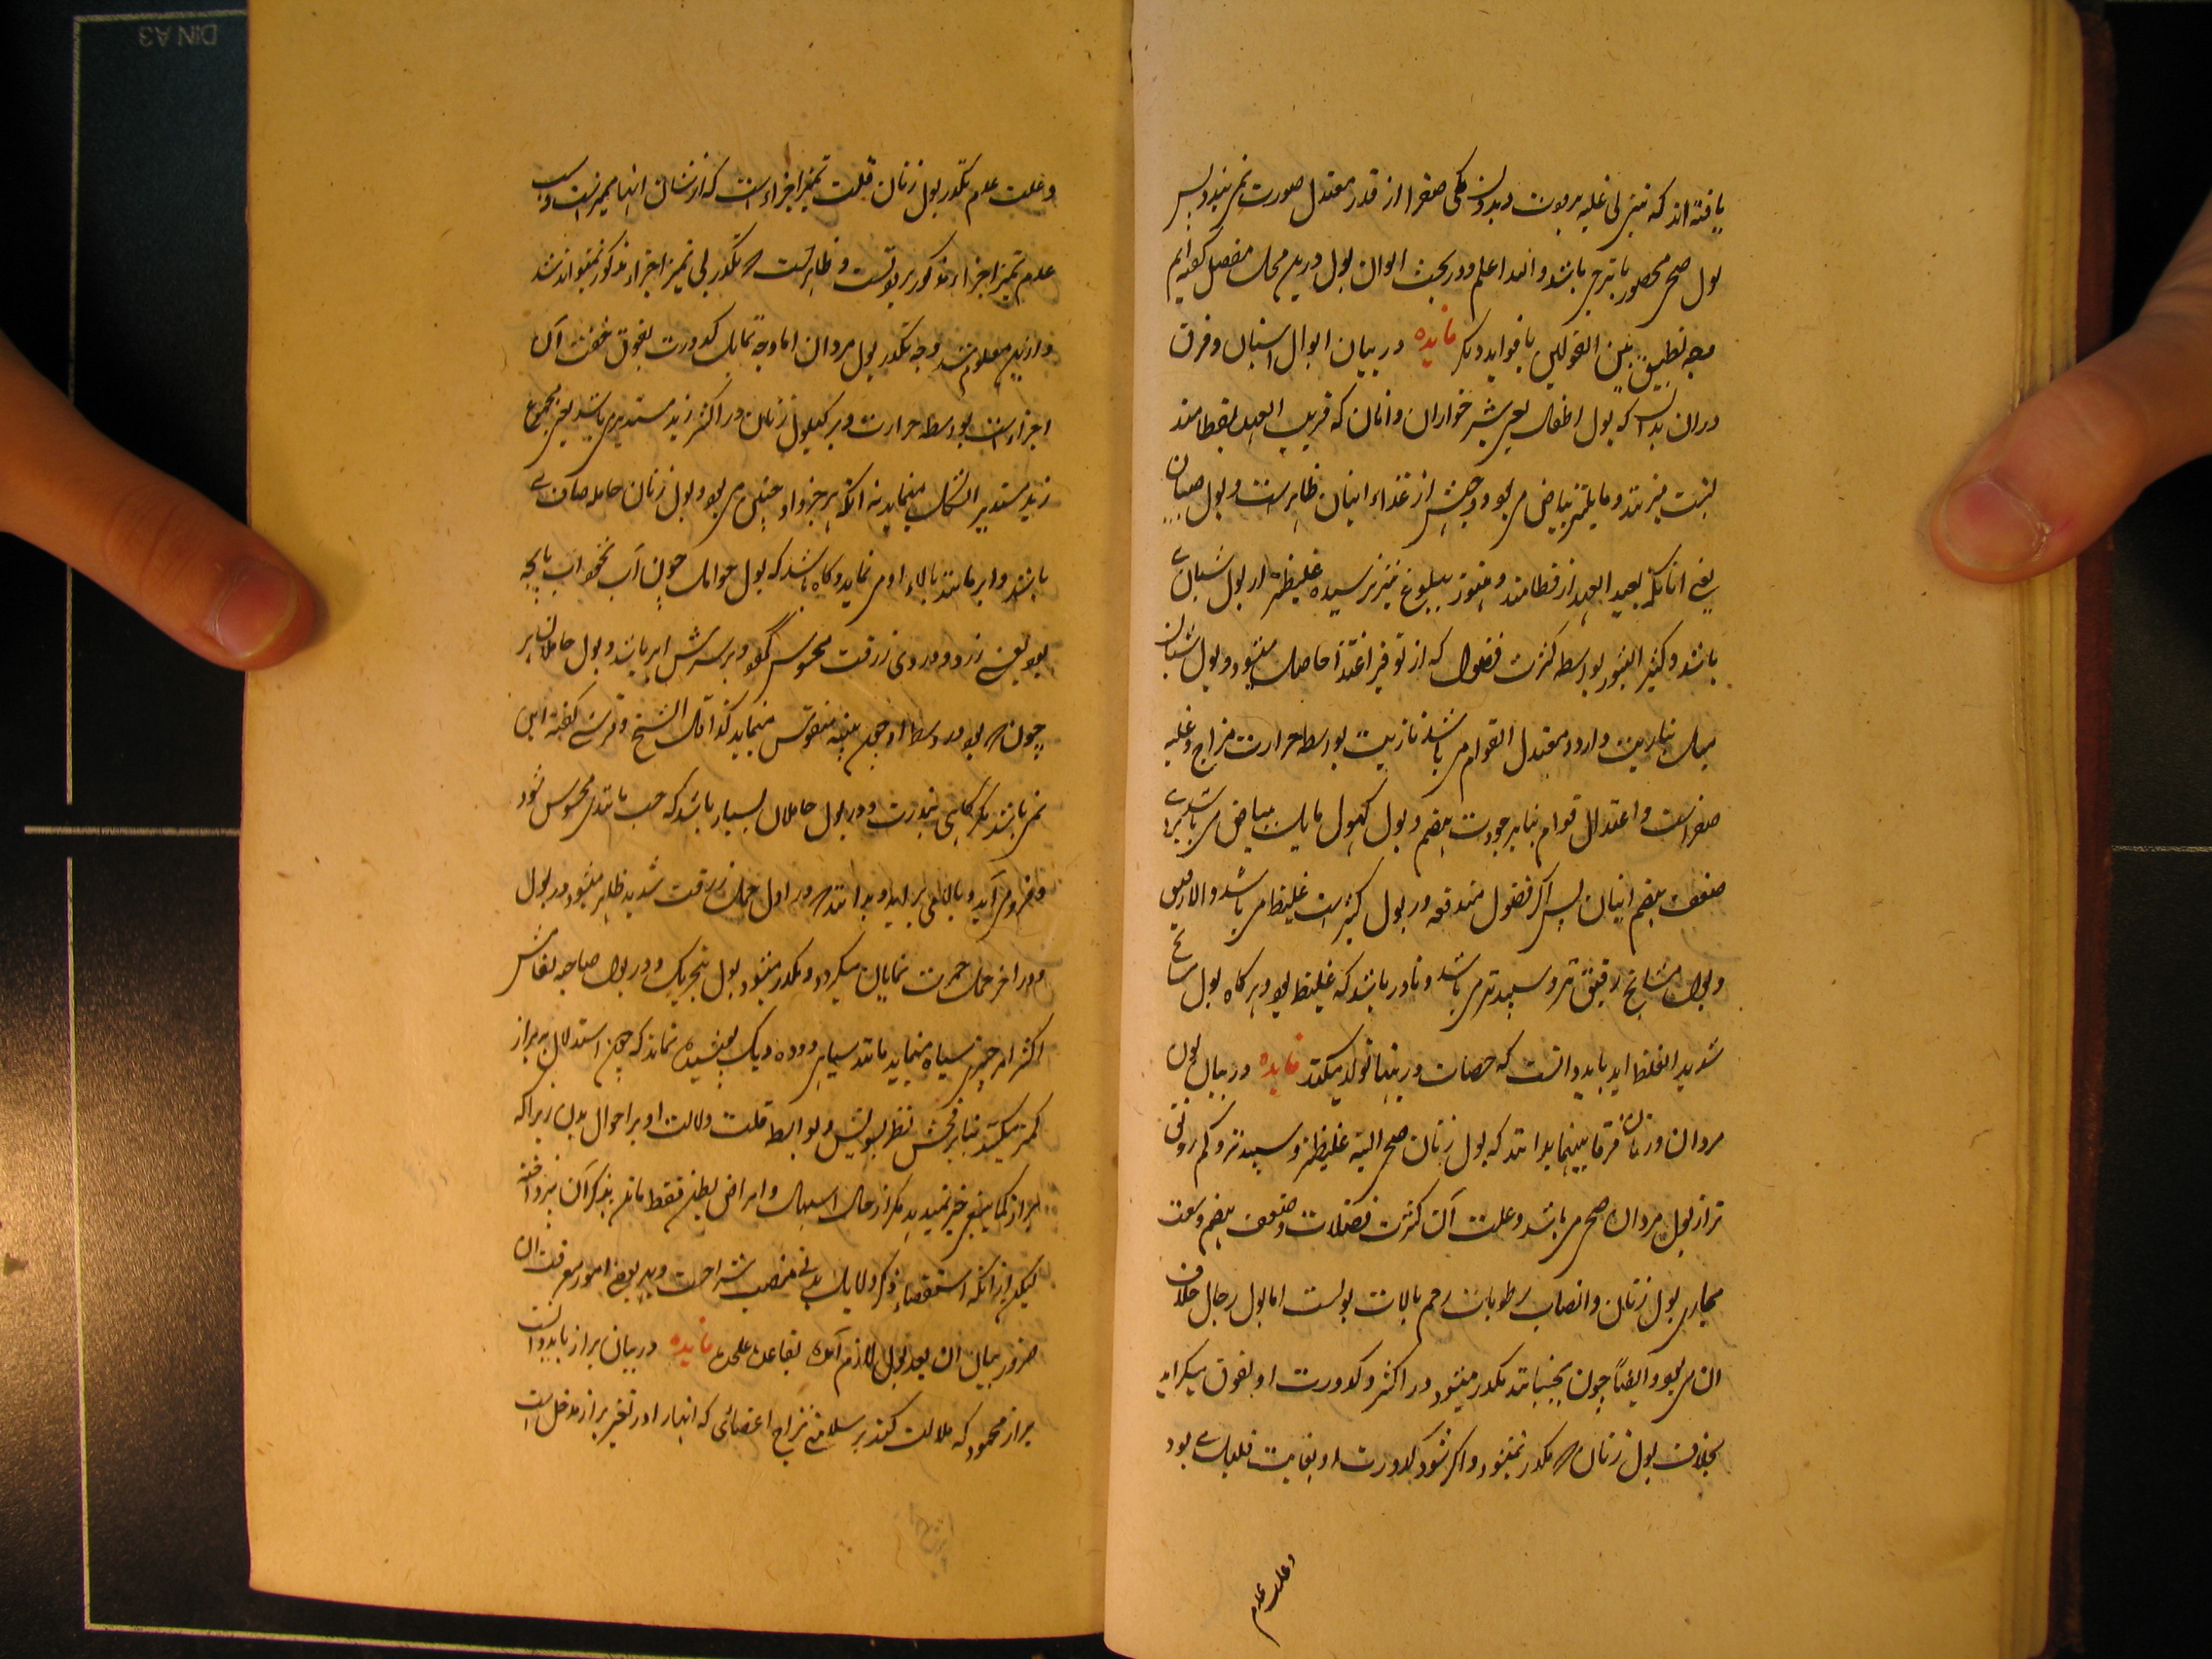 یافته اند که نیز بی غلبه برودت و بدون کمی صفرا از قدر معتدل صورت نمی بندد پس
بول صحی محصور باترجی باشد والله اعلم و در بحث الوان بول درین محل مفصل گفته ایم
وجه تطبیق بین القولین با فواید دیگر فایده در بیان ابوال اسنان و فرق
دران بدانکه بول اطفال یعنی شیر خواران و انان که قریب العهد بفطام اند
مایل ببیاض می بود و وجهش از غذاء اینان ظاهر است و بول صبیان
یعنی انانکه بعید العهد از فطام اند و هنوز ببلوغ نیز نرسیده غلیظتر از بول شبان
باشد و کثیر بواسطه کثرت فضول که از توفیر اغتذا حاصل میشود و بول شبان
میل بناریت دارد و معتدل القوام می باشد ناریت بواسطه حرارت مزاج و غلبه
صفراست و اعتدال قوام بنابر جودت هضم و بول کهول مایل ببیاض می باشد
ضعف هضم اینان پس اگر فضول مندفعه در بول کثیر است غلیظ می باشد و الا رقیق
و بول مشایخ رقیق تر و سپیدتر می باشد و نادر باشد که غلیظ بود و هر کاه بول شیخ
شدید الغلظ اید باید دانست که حصات در تولد میکند فایده در بیان بول
مردان و زنان و فرق ما بینهما بدانند که بول زنان صحی البته غلیظتر و سپیدتر و کم رونق
تر از بول مردان صحی می باشد و علت آن کثرت فضلات و ضعف هضم و سعت
مجاری بول زنان و انصاب رطوبات رحم بالات بولست اما بول رجال خلاف
ان می بود و ایضاً چون بجنبانند مکدر میشود در اکثر و کدورت او بفوق میکراید
بخلاف بول زنان که مکدر نمیشود و اکر شود کدورت او بغایت قلیل می بود
وعلت عدم
وعلت عدم تکدر بول زنان قلت تمیز اجزاء است که از شان انها تمیز است و سبب
عدم تمیز اجزاء مذکور برودتست و ظاهر است که تکدر بی تمیز اجزاء مذکور نمیتواند شد
و ازین معلوم شد وجه تکدر بول مردان اما وجه تمایل کدورت بفوق خفت آن
اجزاء است بواسطه حرارت و بر کیلوس زنان در اکثر زبد مستدیری باشد یعنی مجموع
زبد مستدیر الشکل مینماید نه انکه هر جزو او چنین می بود و بول زنان حامله صافی
باشد و ابر مانند بالاء او می نماید و گاه باشد که بول حوامل چون آب نخود آب پاچه
بود یعنی زرد و در وی زرقت محسوس گردد و بر سرش ابر باشد و بول حاملان هر
چون که بود در وسط او چون پنبه منفوش مینماید کذا قال الشیخ و قرشی گفته این
نمی باشد مگر گاهی بندرت و در بول حاملان بسیار باشد که حب مانندی محسوس شود
و فرو می آید و بالا می براید و بدانند که در اول حمل زرقت شدید ظاهر میشود در بول
و در اخر حمل حمرت نمایان میگردد و مکدر میشود بول بتحریک و در بول صاحبه نفاس
اکثر امر چیزی سیاه مینماید مانند سیاهی دوده دیگ پوشیده نماند که چون استدلال بر براز
کمتر میکنند بنابر فحش نظر بسویش و بواسطه قلت دلالت او بر احوال بدن زیرا که
براز کما ینبغی خبر نمیدهد مگر از حال اسهال و امراض بطن فقط ماتن بذکر آن نپرداخته
لیکن از انکه استقصاء ذکر دلایل بدنی منصب شراحست و بر بعضی امور معرفت ان
ضرور بیان ان بعد بول لازم آمد بقاعده علیحده فایده در بیان براز باید دانست
براز محمود که دلالت کند بر سلامتی مزاج اعضائی که انها را در تغیر براز مدخل است